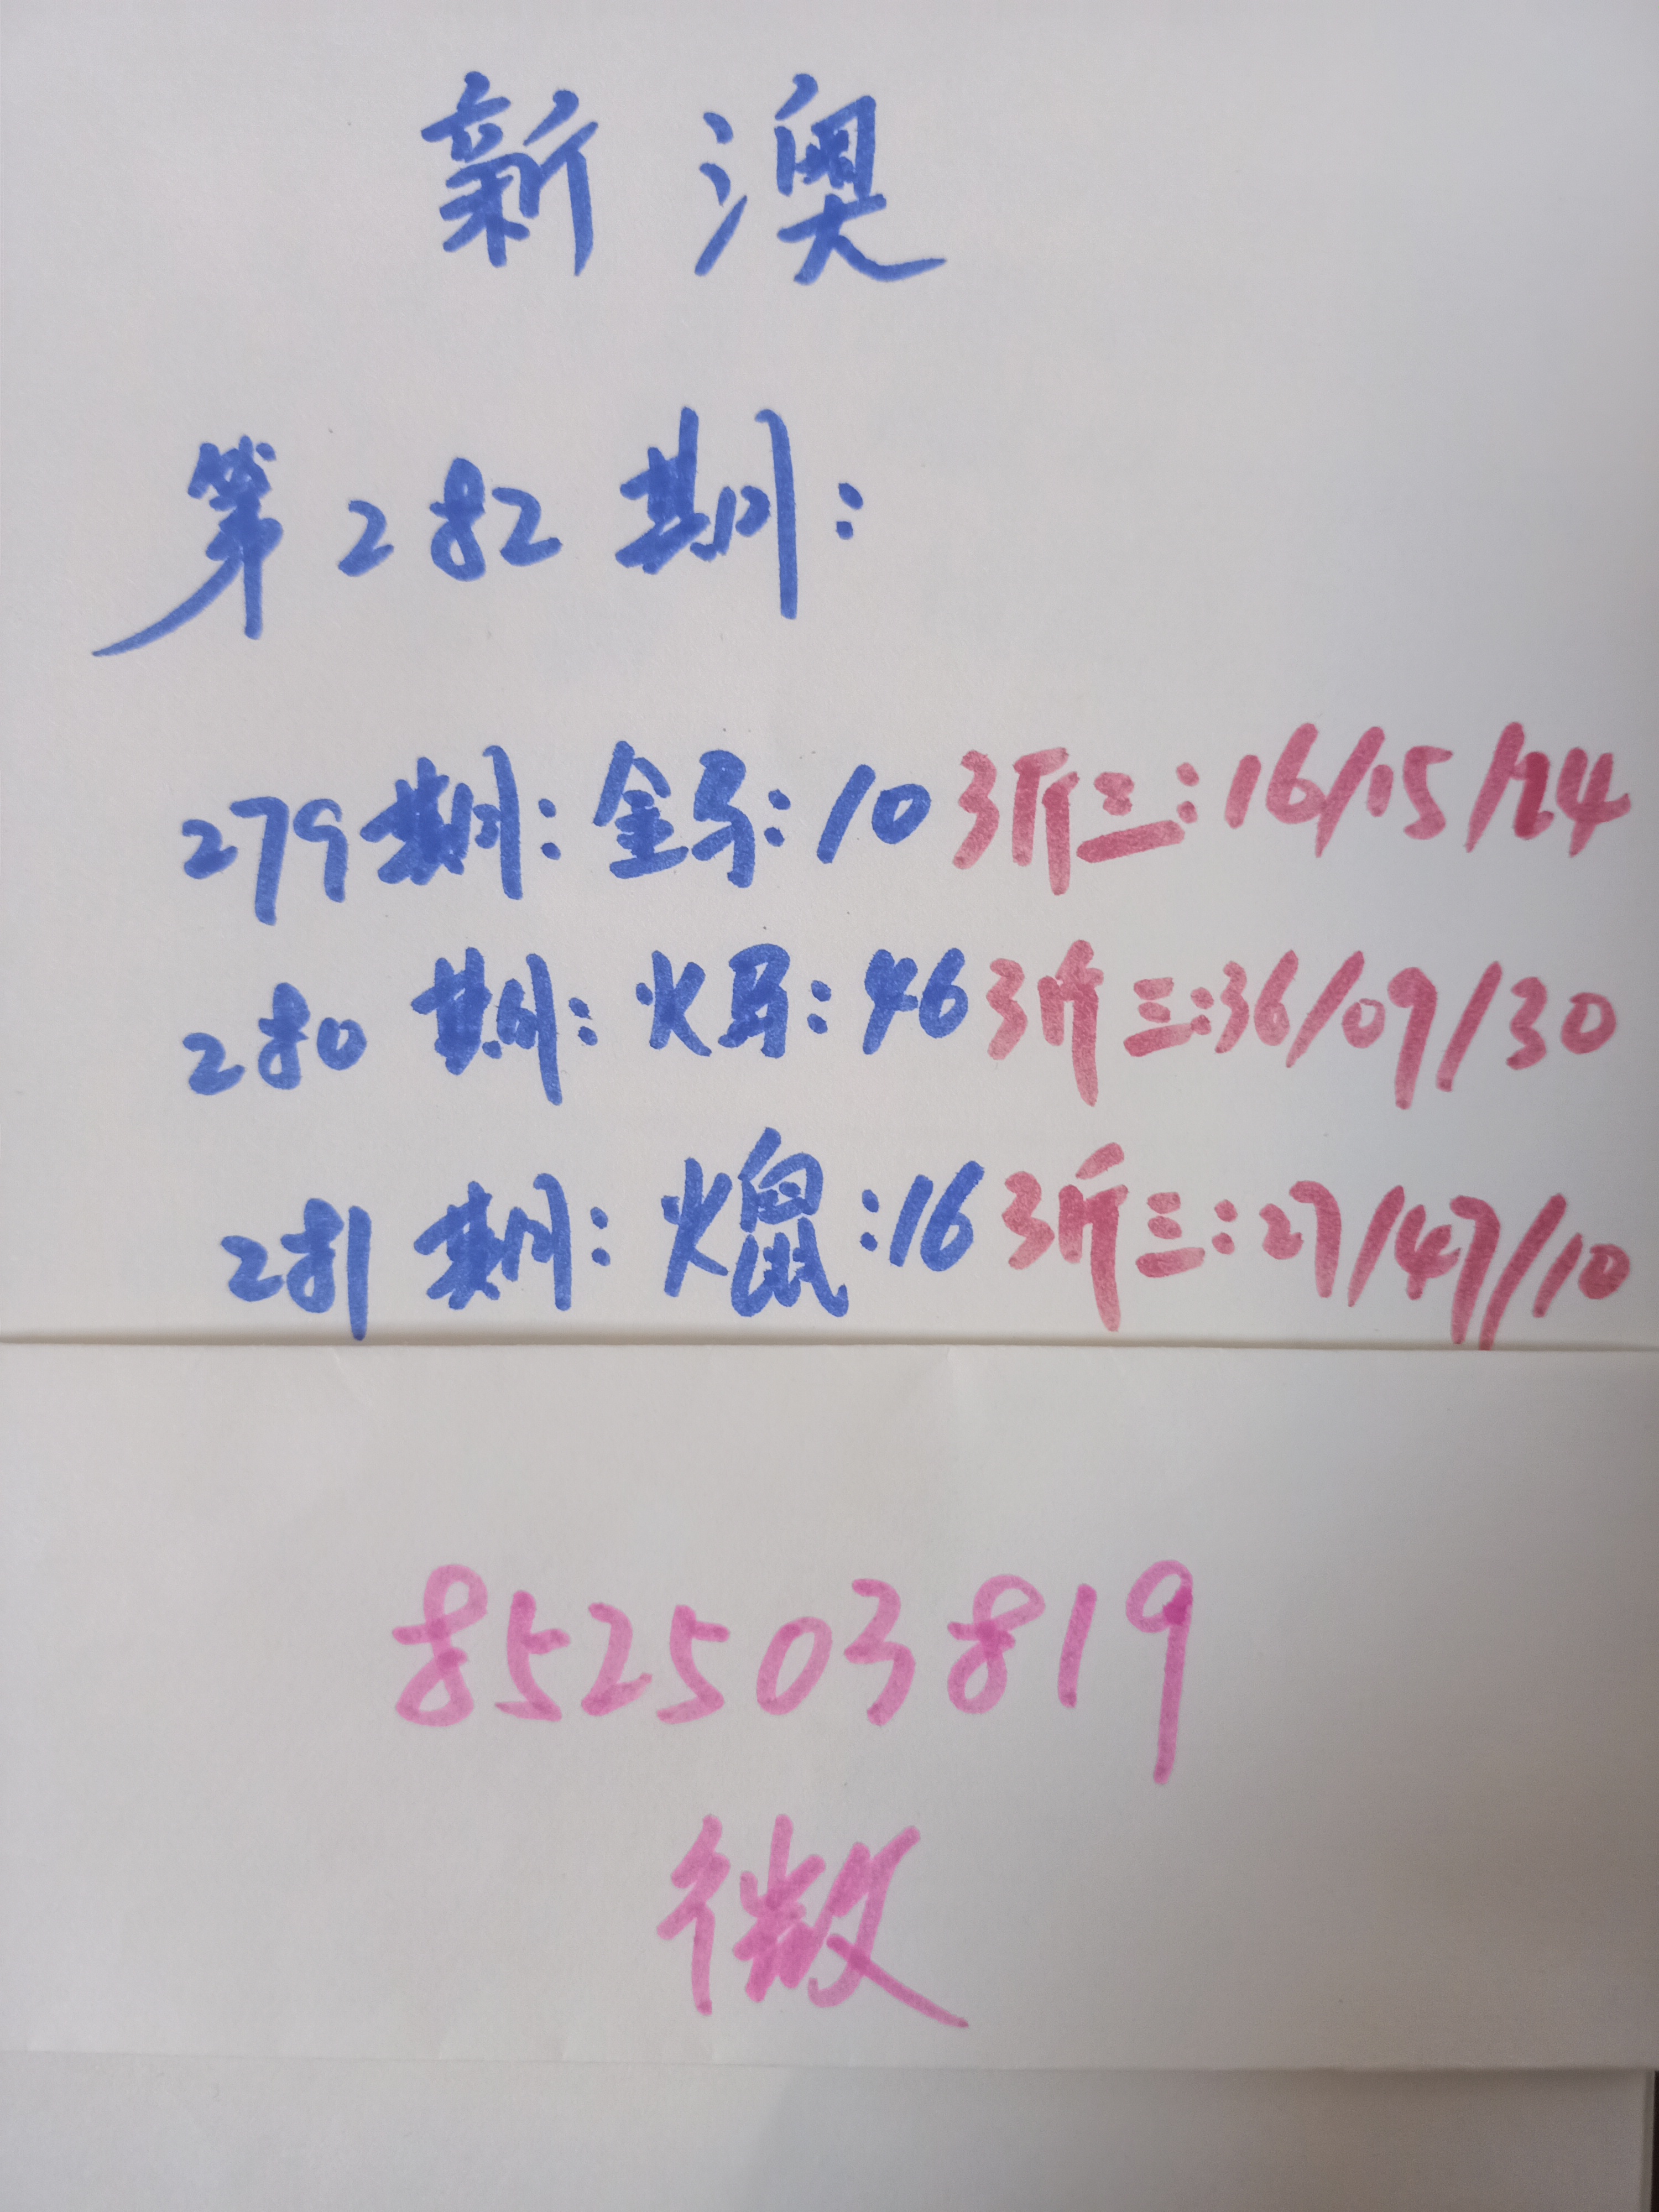 新澳
第282期:
279期:金马:10 3斤三:16/15/24
280期:火马:46 3斤三:36/09/30
281期:火鼠:16 3斤三:27/47/10
852503819
微